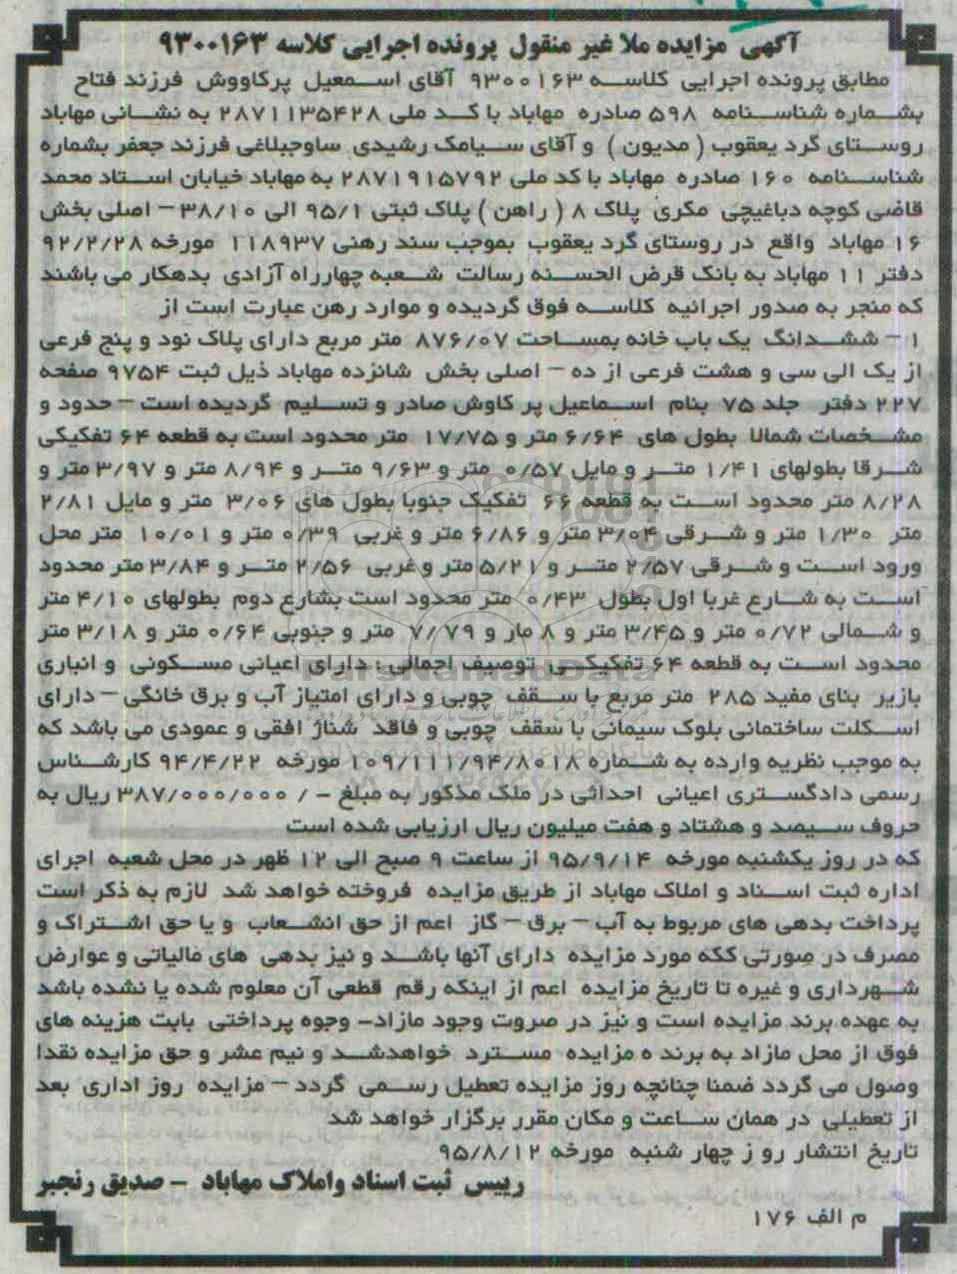 آگهی مزایده ملا غیر منقول پرونده اجرایی کلاسه ۹۳۰۰۱۶۳
مطابق پرونده اجرایی کلاسه ۹۳۰۰۱۶۳ آقای اسمعیل پرکاووش فرزند فتاح
بشماره شناسنامه ۵۹۸ صادره مهاباد با کد ملی ۲۸۷۱۱۳۵۴۲۸ به نشانی مهاباد
روستای گرد یعقوب ( مدیون ) و آقای سیامک رشیدی ساوجبلاغی فرزند جعفر بشماره
شناسنامه ۱۶۰ صادره مهاباد با کد ملی ۲۸۷۱۹۱۵۷۹۲ به مهاباد خیابان استاد محمد
قاضی کوچه دباغیچی مکری پلاک ۸ ( راهن ) پلاک ثبتی ۹۵/۱ الی ۳۸/۱۰ – اصلی بخش
۱۶ مهاباد واقع در روستای گرد یعقوب بموجب سند رهنی ۱۱۸۹۳۷ مورخه ۹۲/۲/۲۸
دفتر ۱۱ مهاباد به بانک قرض الحسنه رسالت شعبه چهارراه آزادی بدهکار می باشند
که منجر به صدور اجرائیه کلاسه فوق گردیده و موارد رهن عبارت است از
۱ – ششدانگ یک باب خانه بمساحت ۸۷۶/۰۷ متر مربع دارای پلاک نود و پنج فرعی
از یک الی سی و هشت فرعی از ده – اصلی بخش شانزده مهاباد ذیل ثبت ۹۷۵۴ صفحه
۲۲۷ دفتر جلد ۷۵ بنام اسماعیل پر کاوش صادر و تسلیم گردیده است – حدود و
مشخصات شمالا بطول های ۶/۶۴ متر و ۱۷/۷۵ متر محدود است به قطعه ۶۴ تفکیکی
شرقا بطولهای ۱/۴۱ متر و مایل ۰/۵۷ متر و ۹/۶۳ متر و ۸/۹۴ متر و ۳/۹۷ متر و
۸/۲۸ متر محدود است به قطعه ۶۶ تفکیک جنوبا بطول های ۳/۰۶ متر و مایل ۲/۸۱
متر ۱/۳۰ متر و شرقی ۳/۰۴ متر و ۶/۸۶ متر و غربی ۰/۳۹ متر و ۱۰/۰۱ متر محل
ورود است و شرقی ۲/۵۷ متر و ۵/۲۱ متر و غربی ۲/۵۶ متر و ۳/۸۴ متر محدود
است به شارع غربا اول بطول ۰/۴۳ متر محدود است بشارع دوم بطولهای ۴/۱۰ متر
و شمالی ۰/۷۲ متر و ۳/۴۵ متر و ۸ مار و ۷/۷۹ متر و جنوبی ۰/۶۴ متر و ۳/۱۸ متر
محدود است به قطعه ۶۴ تفکیکی توصیف اجمالی : دارای اعیانی مسکونی و انباری
بازیر بنای مفید ۲۸۵ متر مربع با سقف چوبی و دارای امتیاز آب و برق خانگی – دارای
اسکلت ساختمانی بلوک سیمانی با سقف چوبی و فاقد شناژ افقی و عمودی می باشد که
به موجب نظریه وارده به شماره ۱۰۹/۱۱۱/۹۴/۸۰۱۸ مورخه ۹۴/۴/۲۲ کارشناس
رسمی دادگستری اعیانی احداثی در ملک مذکور به مبلغ - / ۳۸۷/۰۰۰/۰۰۰ ریال به
حروف سیصد و هشتاد و هفت میلیون ریال ارزیابی شده است
که در روز یکشنبه مورخه ۹۵/۹/۱۴ از ساعت ۹ صبح الی ۱۲ ظهر در محل شعبه اجرای
اداره ثبت اسناد و املاک مهاباد از طریق مزایده فروخته خواهد شد لازم به ذکر است
پرداخت بدهی های مربوط به آب – برق – گاز اعم از حق انشعاب و یا حق اشتراک و
مصرف در صورتی ککه مورد مزایده دارای آنها باشد و نیز بدهی های مالیاتی و عوارض
شهرداری و غیره تا تاریخ مزایده اعم از اینکه رقم قطعی آن معلوم شده یا نشده باشد
به عهده برند مزایده است و نیز در صروت وجود مازاد- وجوه پرداختی بابت هزینه های
فوق از محل مازاد به برند ه مزایده مسترد خواهدشد و نیم عشر و حق مزایده نقدا
وصول می گردد ضمنا چنانچه روز مزایده تعطیل رسمی گردد – مزایده روز اداری بعد
از تعطیلی در همان ساعت و مکان مقرر برگزار خواهد شد
تاریخ انتشار رو ز چهار شنبه مورخه ۹۵/۸/۱۲
رییس ثبت اسناد واملاک مهاباد – صدیق رنجبر
م الف ۱۷۶
ParsNamadData